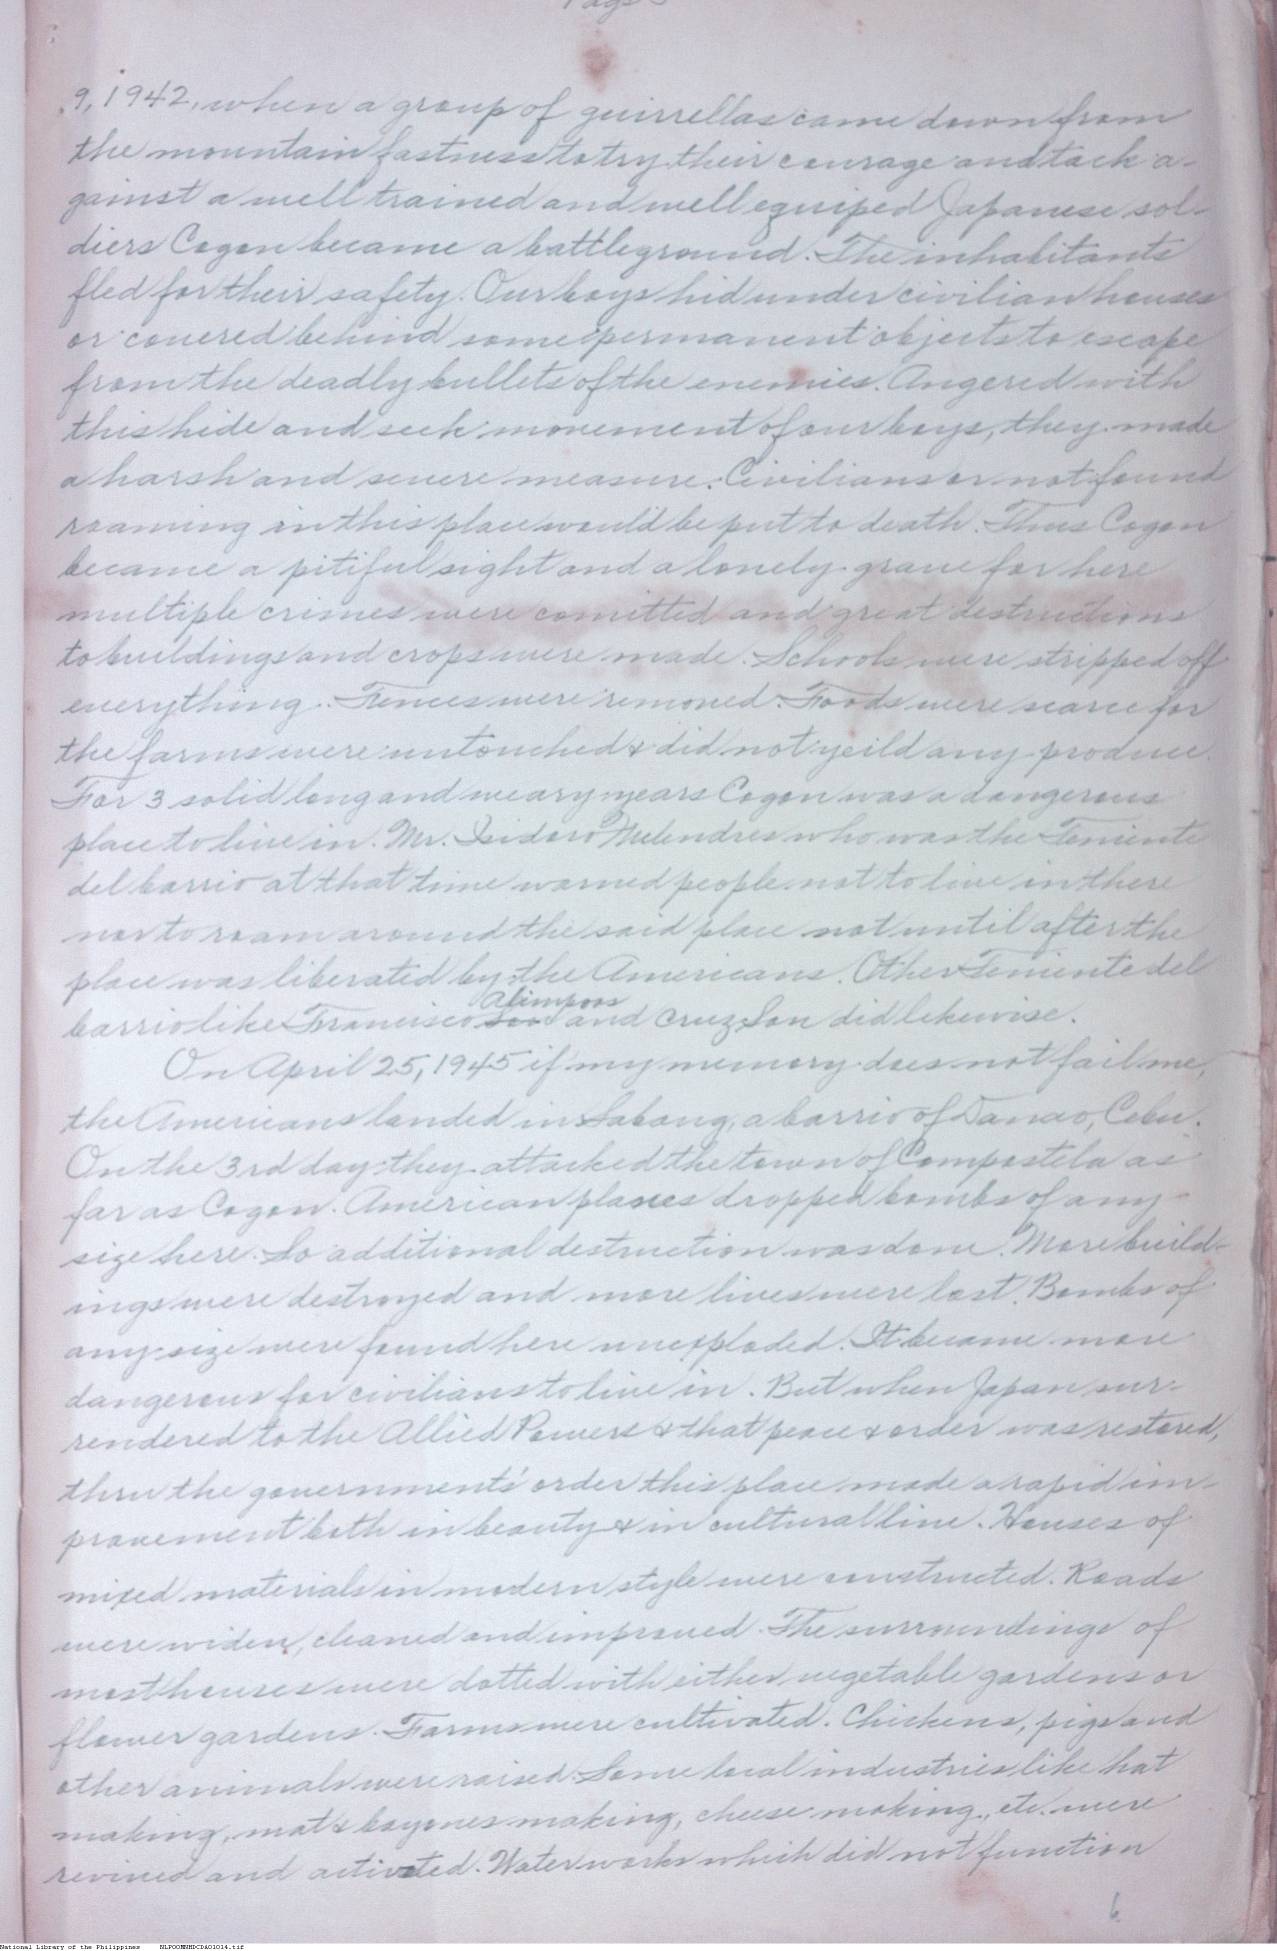 Page
9, 1942, when a group of guirrellas came down from
the mountain fastness to try their courage and tack a-
gainst a well trained and well equiped Japanese sol-
diers Cogon became a battleground. The inhabitants
fled for their safety. Our boys hid under civilian houses
or covered behind some permanent objects to escape
from the deadly bullets of the enemies. Angered with
this hide and seek movement of our boys, they made
a harsh and severe measure. Civilians or not found
roaming in this place would be put to death. Thus Cogon
became a pitiful sight and a lonely grave for here
multiple crimes were comitted and great destructions
to buildings and crops were made. Schools were stripped off
everything. Fences were removed. Foods were scarce for
the farms were untouched & did not yeild any produce.
For 3 solid long and weary years Cogon was a dangerous
place to live in. Mr. Isidoro Melendres who was the Teniente
del barrio at that time warned people not to live in there
nor to roam around the said place not until after the
place was liberated by the Americans. Other Teniente del
Alimpoos
barrio like Francisco and Cruz Son did likewise.
On April 25, 1945 if my memory does not fail me,
the Americans landed in Sabang, a barrio of Danao, Cebu.
On the 3rd day they attacked the town of Compostela as
far as Cogon. American planes dropped bombs of any
size here. So additional destruction was done. More build-
ings were destroyed and more lives were lost. Bombs of
any size were found here unexploded. It became more
dangerous for civilians to live in. But when Japan sur-
rendered to the Allied Powers & that peace & order was restored,
thru the governments' order this place made a rapid im-
provement both in beauty & in cultural line. Houses of
mixed materials in modern style were constructed. Roads
were widen, cleaned and improved. The surroundings of
most houses were dotted with either vegetable gardens or
flower gardens. Farms were cultivated. Chickens, pigs and
other animals were raised. Some local industries like hat
making, mat & bayones making, cheese making, etc. were
revived and activated. Water works which did not function
6
National Library of the Philippines NLPOOMNHDCDA01014.tif